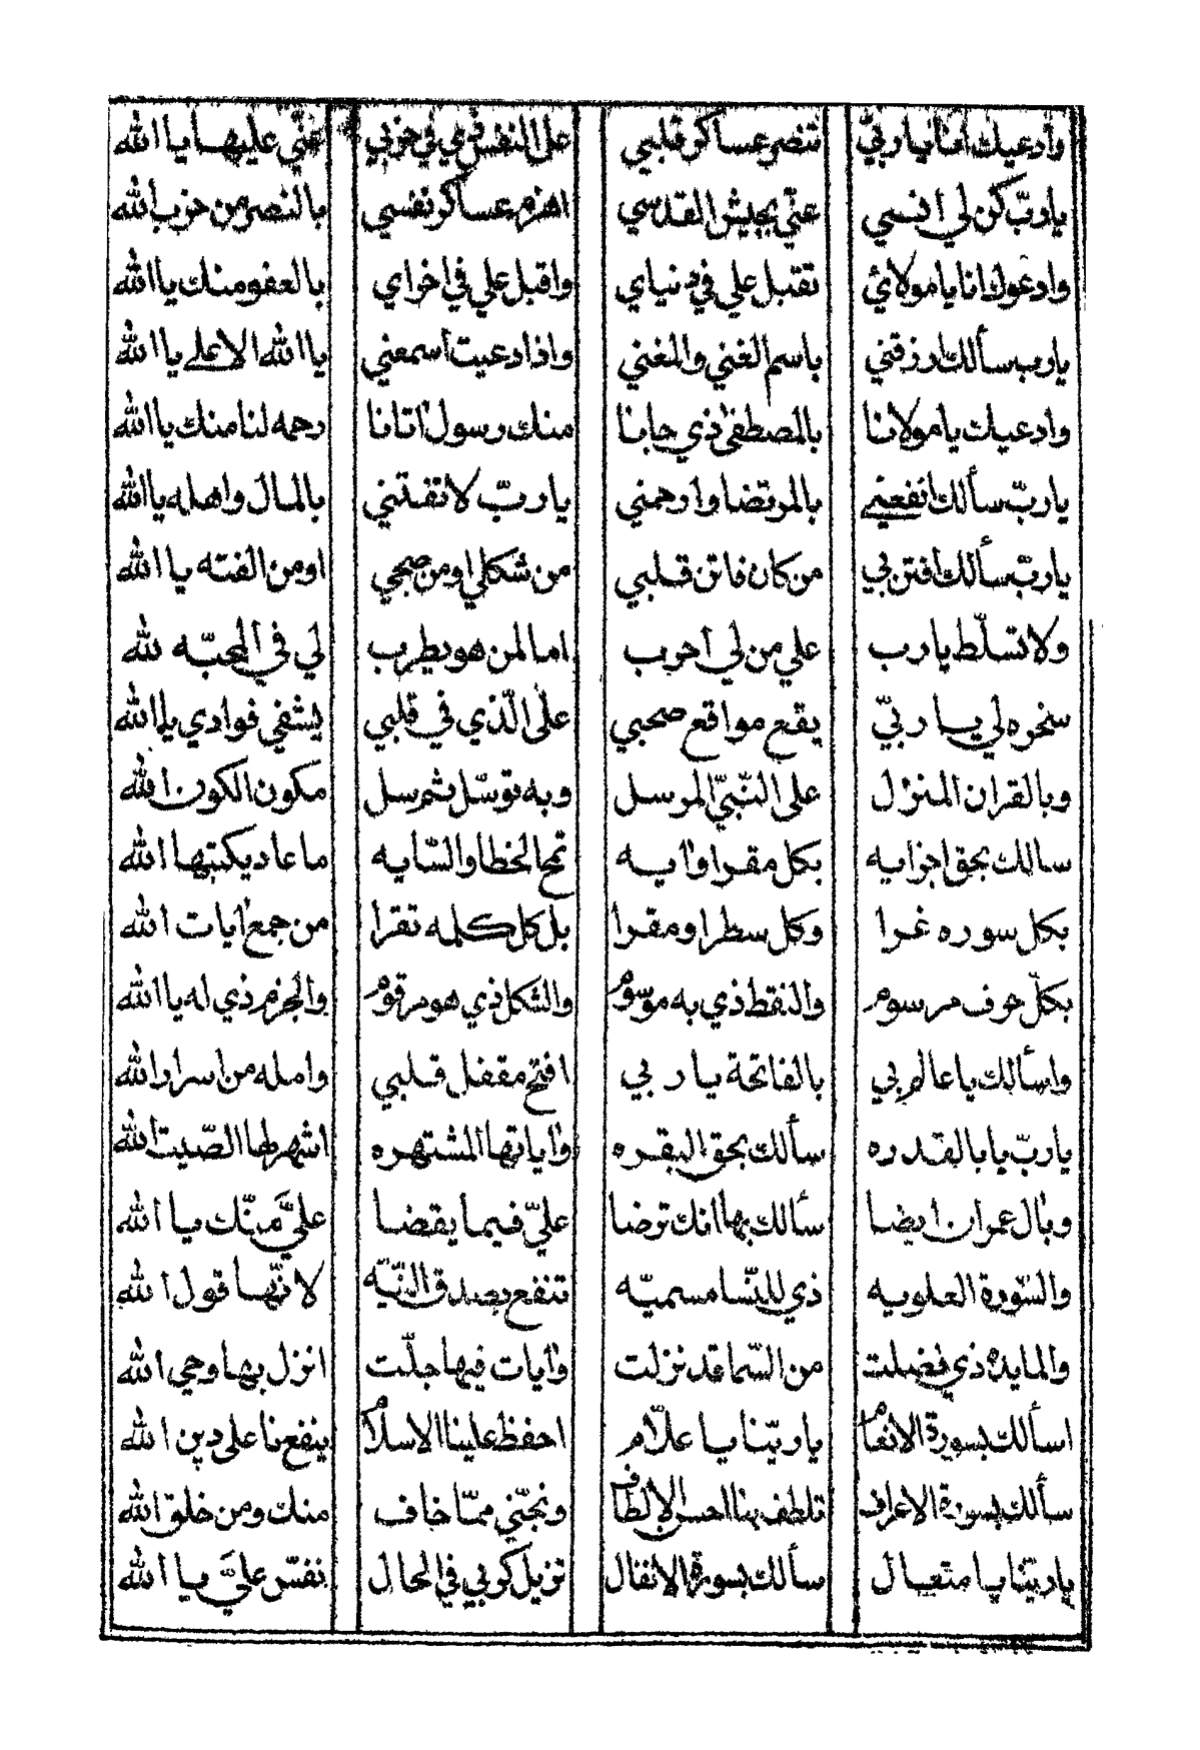 وادعيك انا ياربّي تنصر عساكر قلبي على النفس في حزبي عنّي عليها يا الله
ياربّ كن لي انسي عنّي بجيش القدسي اهزم عساكر نفسي بالنصر من حزب الله
وادعوك انا يا مولاي تقتبل علي في دنياي واقبل علي في اخراي بالعفو منك يا الله
يارب سألك ارزقني باسم الغني والمغني واذا دعيت أسمعني يا الله الاعلى يا الله
وادعيك يا مولانا بالمصطفى ذي جانا منك رسول اتانا رحمه لنا منك يا الله
ياربّ سألك انفعني بالمرتضا وارحمني ياربّ لا تفتني بالمال واهله يا الله
ياربّ سألك افتن بي من كان فاتن قلبي من شكلي او من صحبي او من الفته يا الله
ولا تسلّط يارب علي من لي احرب اما لمن هو يطرب لي في المحبّه لله
سخره لي يا ربّي يقع مواقع صحبي على الّذي في قلبي يشفي فوادي يا الله
وبالقران المنزل على النّبيّ المرسل وبه توسّل بثمرسل مكون الكون الله
سالك بحق اجزايه بكل مقرا وايه تمح الخطا والسّايه ما عاد يكتبها الله
بكل سوره غرا وكل سطرا ومقرا بل كل كلمه تقرا من جمع ايات الله
بكلّ حرف مرسوم والنقط ذي به موسوم والشكل ذي هو مرقوم والجزم ذي له يا الله
واسألك يا عالم بي بالفاتحة يا ربي افتح مقفل قلبي وامله من اسرار الله
ياربّ يا بالقدره سألك بحق البقره واياتها المشتهره اشهر لها الصّيت الله
وبال عمران ايضا سألك بها انك ترضا عليّ فيما يقضا عليَّ منّك يا الله
والسّورة العلويه ذي للنّسا مسميّه تنفع بصدق النّيّه لانّها قول الله
والمايده ذي فضلت من السّما قد نزلت وايات فيها جلّت انزل بها وحي الله
اسألك بسورة الانعام يا ربّنا يا علاّم احفظ علينا الاسلام ينفعنا على دين الله
سألك بسورة الاعراف تلطف بنا احسن الالطاف ونجّني ممّا خاف منك ومن خلق الله
يا ربّنا يا متعال سألك بسورة الانفال تزيل كربي في الحال نفسّ عليَّ يا الله